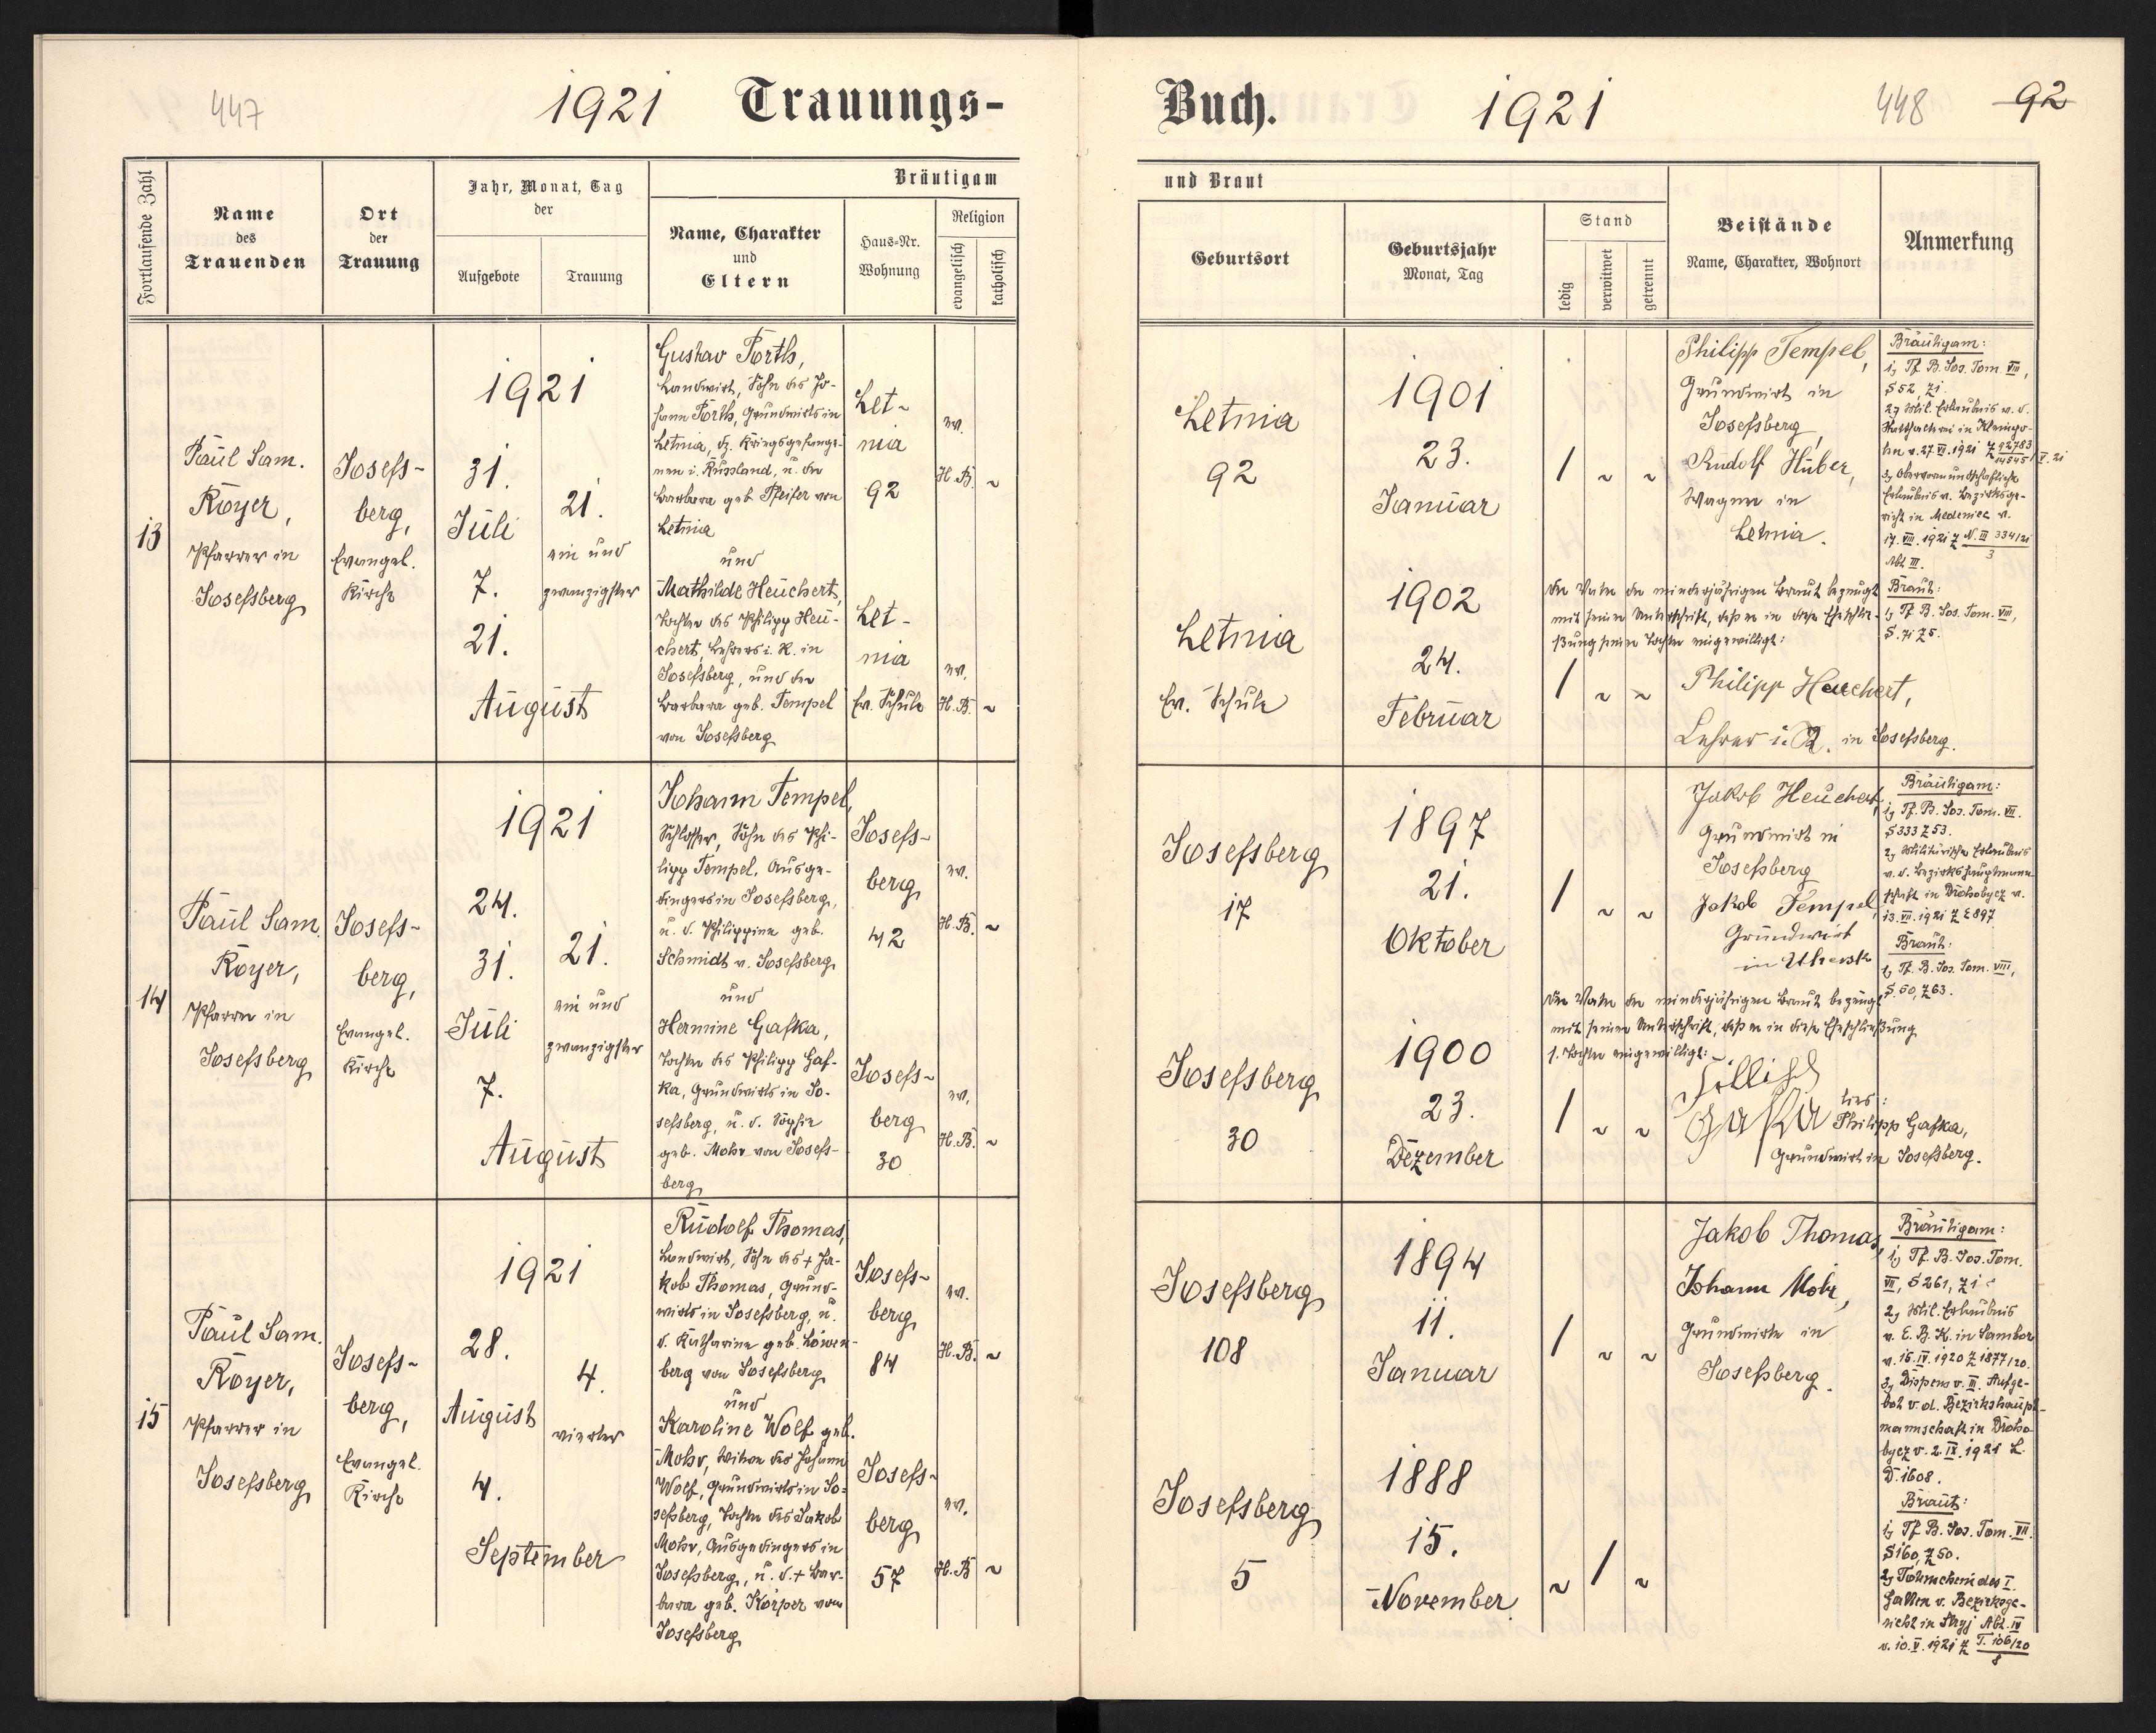 447
1921 Trauungs-
Fortlaufende Zahl
Name
des
Trauenden
Ort
der
Trauung
Jahr, Monat, Tag
der
Aufgebote
Trauung
Bräutigam
Name, Charakter
und
Eltern
Haus-Nr.
Wohnung
Religion
evangelisch
katholisch
13
Paul Sam.
Royer,
Pfarrer in
Josefsberg
Josefs-
berg,
Evangel.
Kirche
1921
31.
Juli
7.
21.
August
21.
ein und
zwanzigster
Gustav Porth,
Landwirt, Sohn des Jo-
hann Porth, Grundwirts in
Letnia, dz. Kriegsgefange-
nen i. Russland, u. der
Barbara geb. Pfeifer von
Letnia
und
Mathilde Heuchert,
Tochter des Philipp Heu-
chert, Lehrers i. R. in
Josefsberg, und der
Barbara geb. Tempel
von Josefsberg
Let-
nia
92
Let-
nia
Ev. Schule
ev.
H. B. ~
ev.
H. B. ~
14
Paul Sam.
Royer,
Pfarrer in
Josefsberg
Josefs-
berg,
Evangel.
Kirche
1921
24.
31.
Juli
7.
August
21.
ein und
zwanzigster
Johann Tempel,
Schlosser, Sohn des Phi-
lipp Tempel, Ausge-
dingers in Josefsberg,
u. d. Philippine geb.
Schmidt v. Josefsberg
und
Hermine Gafka,
Tochter des Philipp Gaf-
ka, Grundwirts in Jo-
sefsberg, u. d. Sophie
geb. Mohr von Josefs-
berg
Josefs-
berg
42
Josefs-
berg
30
ev.
H. B. ~
ev.
H. B. ~
15
Paul Sam.
Royer,
Pfarrer in
Josefsberg
Josefs-
berg,
Evangel.
Kirche
1921
28.
August
4.
September
4.
vierter
Rudolf Thomas,
Landwirt, Sohn des + Ja-
kob Thomas, Grund-
wirts in Josefsberg, u.
d. Katharine geb. Löwen-
berg von Josefsberg
und
Karoline Wolf geb.
Mohr, Witwe des Johann
Wolf, Grundwirts in Jo-
sefsberg, Tochter des Jakob
Mohr, Ausgedingers in
Josefsberg, u. d. + Bar-
bara geb. Körper von
Josefsberg
Josefs-
berg
84
Josefs-
berg
57
ev.
H. B. ~
ev.
H. B. ~
Buch. 1921
448 92
und Braut
Geburtsort
Geburtsjahr
Monat, Tag
Stand
ledig
verwitwet
getrennt
Beistände
Name, Charakter, Wohnort
Anmerkung
Letnia
92
1901
23.
Januar
/ ~ ~
Philipp Tempel,
Grundwirt in
Josefsberg,
Rudolf Huber,
Wagner in
Letnia.
Bräutigam:
1, Tf. B. Jos. Tom. VIII,
S 52, Z 1.
2, Mil. Erlaubnis v. d.
v. 27. VI. 1921 Z 92783
14545/V. 21
3, Obervormundschaftliche
Erlaubnis v. Bezirksge-
richt in Medenice v.
17. VIII. 1921 Z N. III 334/21
3
Abt III.
Letnia
Ev. Schule
1902
24.
Februar
Der Vater der minderjährigen Braut bezeugt
mit seiner Unterschrift, daß er in diese Eheschlie-
ßung seiner Tochter eingewilligt:
/ ~ ~
Philipp Heuchert,
Lehrer i. R. in Josefsberg.
Braut:
1, Tf. B. Jos. Tom. VIII,
S. 71 Z 5.
Josefsberg
17
1897
21.
Oktober
/ ~ ~
Jakob Heuchert,
Grundwirt in
Josefsberg
Jakob Tempel,
Grundwirt
in Ubersk
Bräutigam:
1, Tf. B. Jos. Tom. VII.
S 333 Z 53.
2, Militärische Erlaubnis
v. d. Bezirkshauptmann-
schaft in Drohobycz v.
13. VII. 1921 Z E 897.
Braut:
1, Tf. B. Jos. Tom. VIII,
S. 60, Z 63.
Josefsberg
30
1900
23.
Dezember
Der Vater der minderjährigen Braut bezeugt
mit seiner Unterschrift, daß er in diese Eheschließung
s. Tochter eingewilligt:
/ ~ ~
Fillibs
Gafka
lies:
Philipp Gafka,
Grundwirt in Josefsberg.
Josefsberg
108
1894
11.
Januar
/ ~ ~
Jakob Thomas,
Johann Mohr,
Grundwirte in
Josefsberg.
Bräutigam:
1, Tf. B. Jos. Tom.
VII, S 261, Z 1
2, Mil. Erlaubnis
v. E. B. K. in Sambor
v. 16. IV. 1920 Z 1877/20.
3, Dispens v. III. Aufge-
bot v. d. Bezirkshaupt-
mannschaft in Droho-
bycz v. 2. IX. 1921 L.
D. 1608.
Josefsberg
5
1888
15.
November
~ / ~
Braut:
1, Tf. B. Jos. Tom. VII.
S 160, Z 50.
2, Totenschein des I.
Gatten v. Bezirksge-
richt in Stryj Abt. IV
v. 10. V. 1921 Z T. 106/20
8